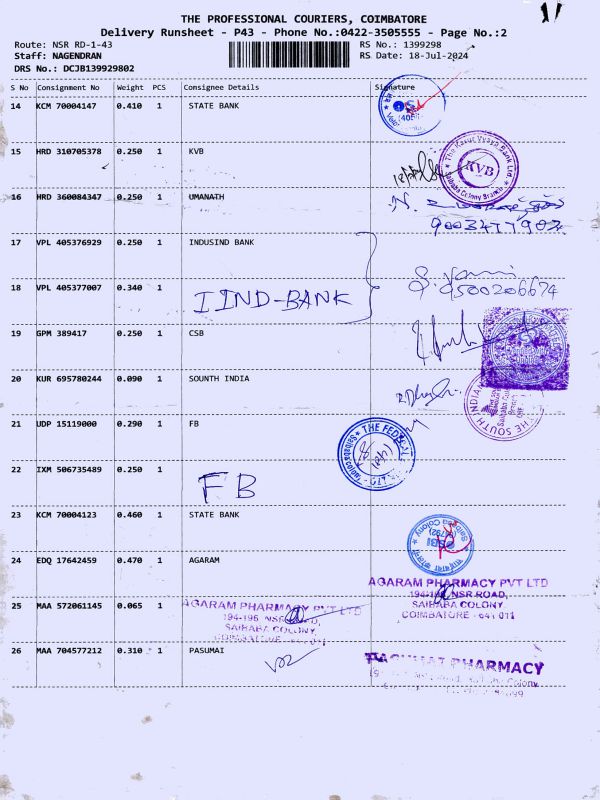 THE PROFESSIONAL COURIERS, COIMBATORE
Delivery Runsheet - P43 - Phone No.:0422-3505555 - Page No.:2
Route: NSR RD-1-43
RS No.: 1399298
Staff: NAGENDRAN
RS Date: 18-Jul-2024
DRS No.: DCJB139929802
S No Consignment No Weight PCS Consignee Details Signature
14 KCM 70004147 0.410 1 STATE BANK
15 HRD 310705378 0.250 1 KVB
The Karur Vysya Bank Ltd
KVB
Saibaba Colony Branch
16 HRD 360084347 0.250 1 UMANATH
9003477902
17 VPL 405376929 0.250 1 INDUSIND BANK
18 VPL 405377007 0.340 1
IIND-BANK
8500206674
19 GPM 389417 0.250 1 CSB
20 KUR 695780244 0.090 1 SOUNTH INDIA
THE SOUTH INDIAN
21 UDP 15119000 0.290 1 FB
THE FEDERAL
22 IXM 506735489 0.250 1
FB
23 KCM 70004123 0.460 1 STATE BANK
SBI
24 EDQ 17642459 0.470 1 AGARAM
AGARAM PHARMACY PVT LTD
NSR ROAD,
SAIBABA COLONY,
COIMBATORE - 641 011
25 MAA 572061145 0.065 1
AGARAM PHARMACY PVT LTD
194-196, NSR ROAD,
SAIBABA COLONY,
26 MAA 704577212 0.310 1 PASUMAI
PHARMACY